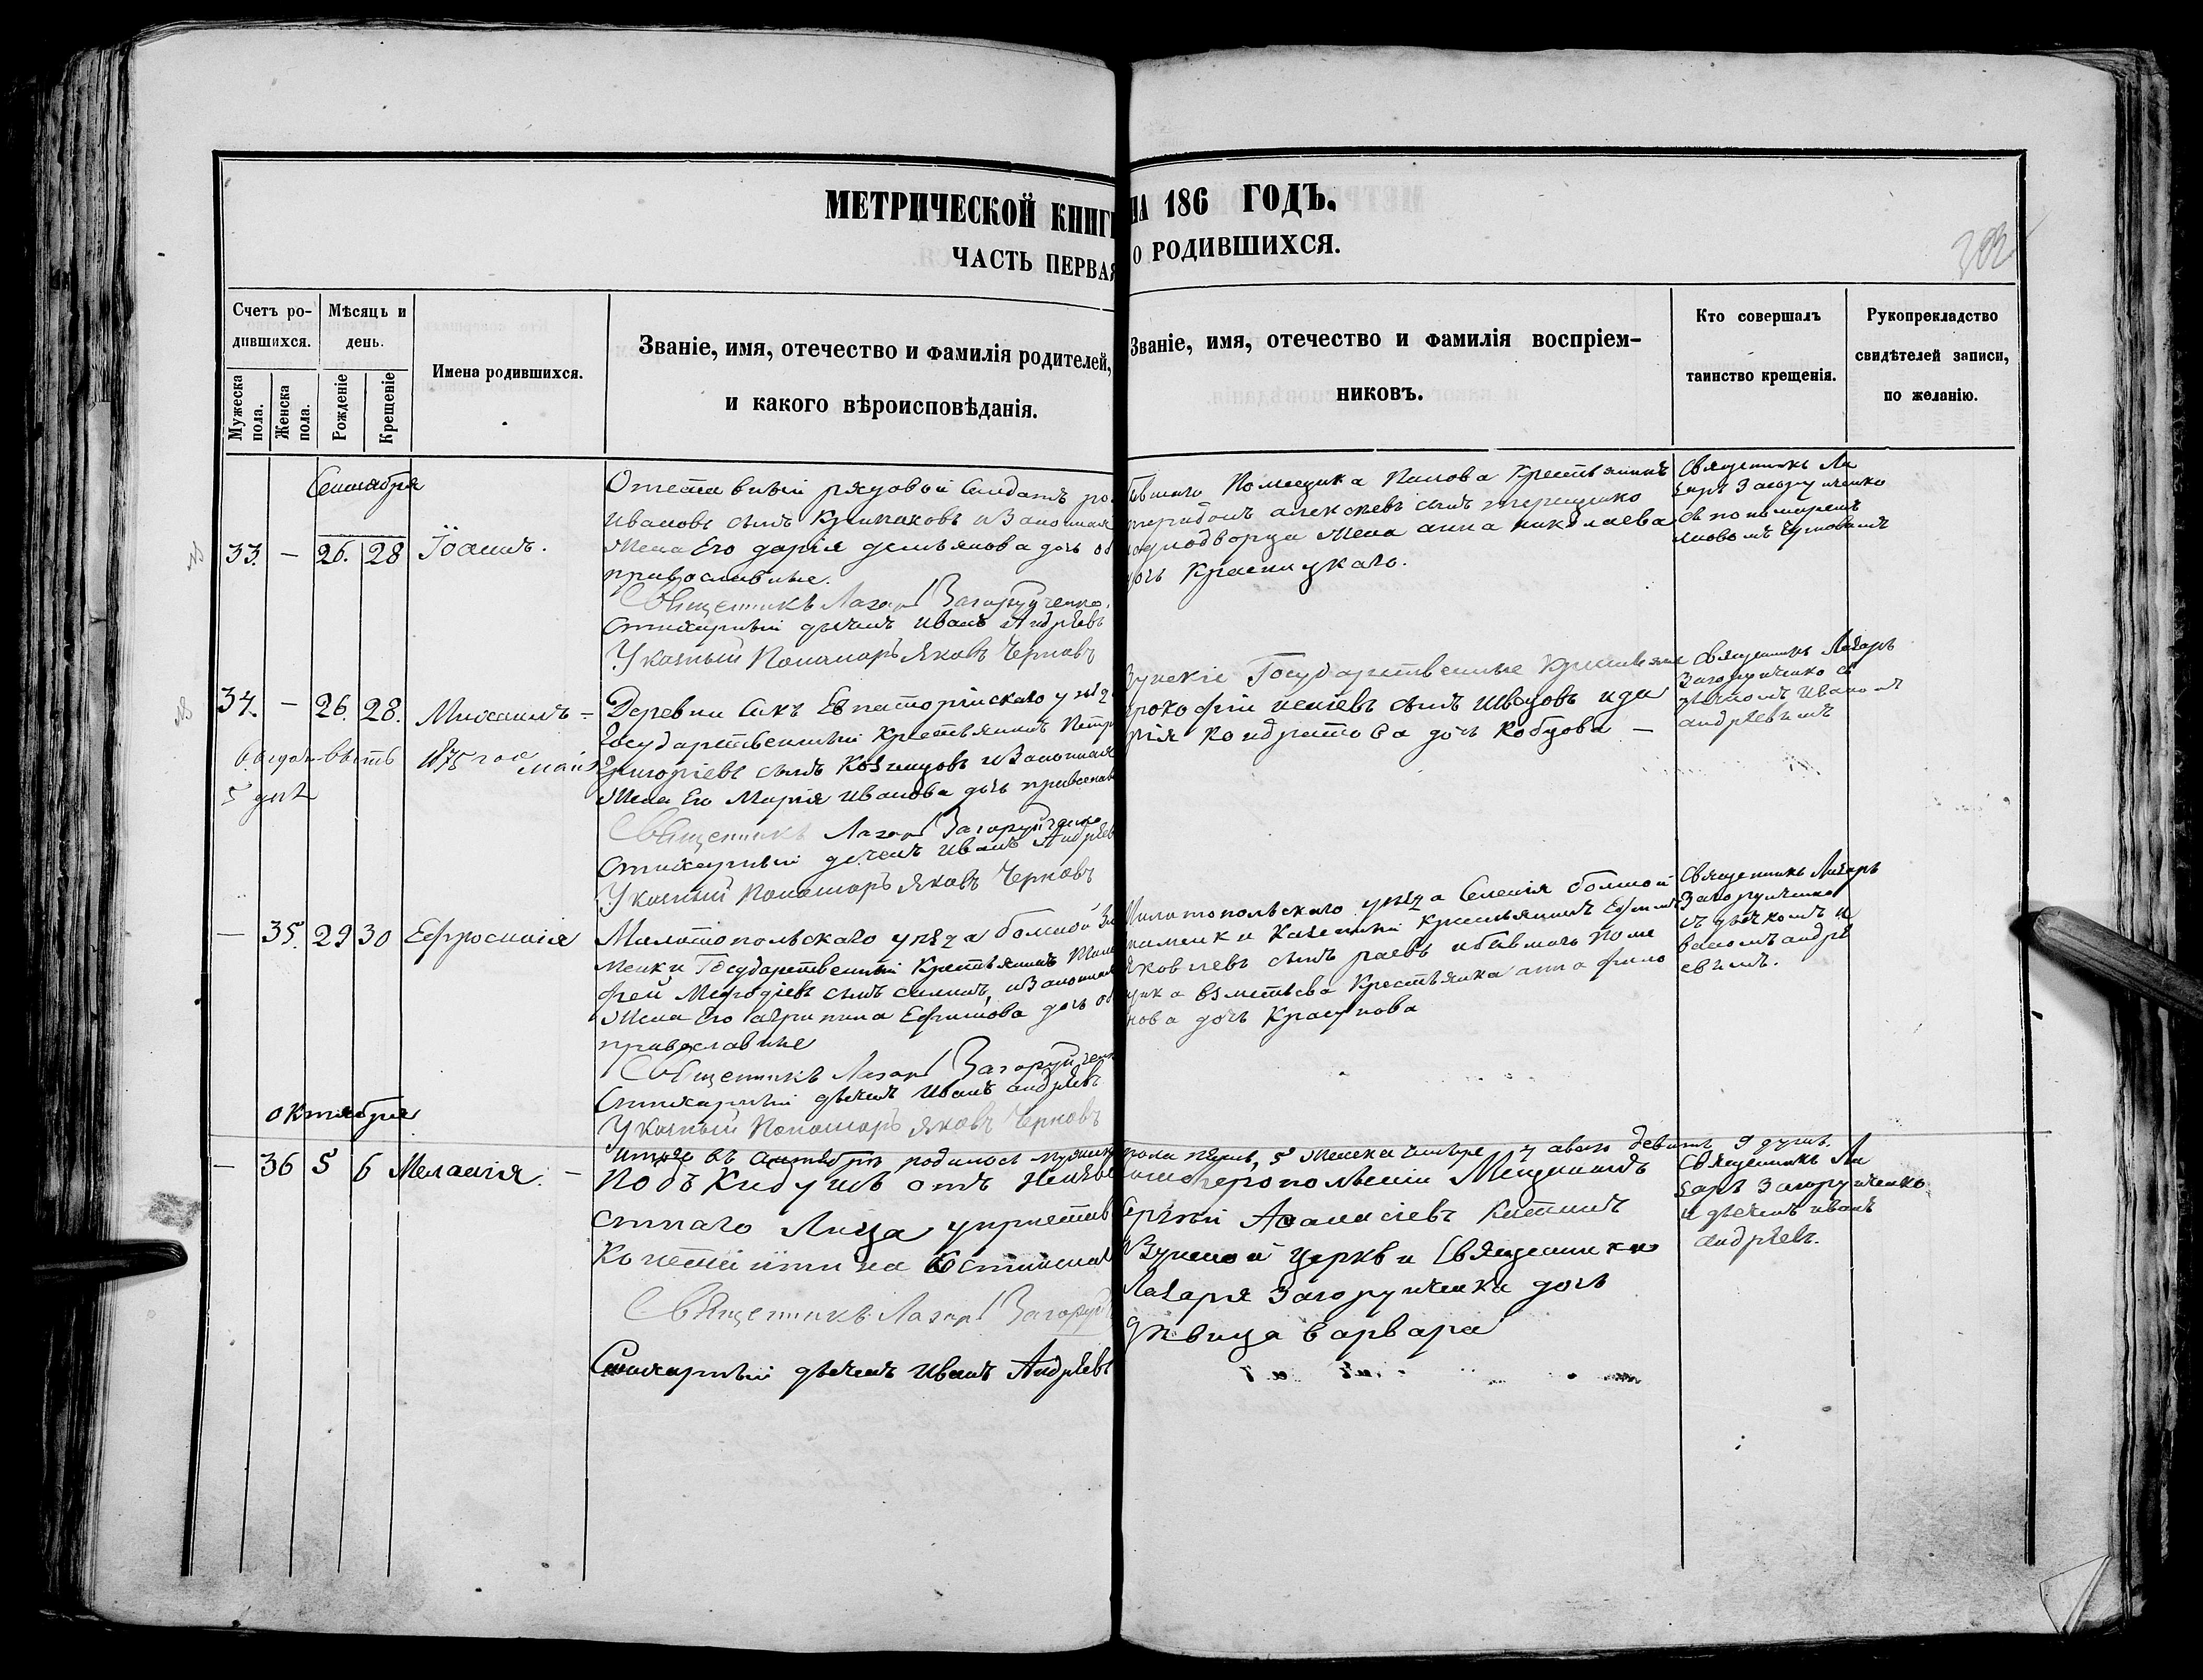 МЕТРИЧЕСКОЙ КНИГ НА 186 ГОДЪ.
ЧАСТЬ ПЕРВАЯ О РОДИВШИХСЯ.
302
Счетъ ро-
дившихся.
Мужеска
пола.
Женска
пола.
Мѣсяць и
день.
Рожденіе
Крещеніе
Имена родившихся.
Званіе, имя, отечество и фамилія родителей,
и какого вѣроисповѣданія.
Званіе, имя, отечество и фамилія воспріем-
никовъ.
Кто совершалъ
таинство крещенія.
Рукоприкладство
свидѣтелей записи,
по желанію.
Сентября
33. — 26. 28 Іоаннъ.
Отставный рядовой Солдатъ
Ивановъ сынъ и Законная
Жена Его дарія демьянова дочь об
православные.
Священникъ Лазарь Загоруйченко.
Стихарный дьячекъ Иванъ Андрѣевъ
Указный Пономарь Яковъ Черновъ
бывшаго Помещика Попова Крестьянинъ
алексеевъ сынъ терещенко
однодворца Жена анна николаева
дочь Красницкаго.
Священникъ Ла
зарь Загоруйченко
съ пономаремъ
34. — 26. 28. Михаилъ =
1875 года май
5 дня
Деревни Сакъ Евпаторійскаго уѣзд
Государственный Крестьянинъ Петр
Григоріевъ сынъ и Законная
Жена Его Марія Иванова дочь православ
Священникъ Лазарь Загоруйченко
Стихарный дьячекъ Иванъ Андрѣев
Указный Пономарь Яковъ Черновъ
Зуйскіе Государственные Крестьяне
прокофій сынъ Швецовъ и да
рія кондратова дочь Кобцова —
Священникъ Лазарь
Загоруйченко съ
дьячкомъ Иваномъ
андрѣевымъ
— 35. 29 30 Ефросинія
Мелитопольскаго уѣзда большой Зн
менки Государственный Крестьянинъ Тимо
фей Мефодіевъ сынъ и Законная
Жена Его агрипина Ефимова дочь об
православные
Священникъ Лазарь Загоруйчен
Стихарный дьячекъ Иванъ андрѣевъ
Указный Пономарь Яковъ Черновъ
Милитопольскаго уѣзда Селенія большой
наменки Казенный крестьянинъ Ефимъ
Яковлевъ сынъ раевъ и бывшаго Поме
щика Крестьянка анна фило
нова дочь Краснова
Священникъ Лазарь
Загоруйченко
съ дьячкомъ и
ваномъ андрѣ
евымъ.
октября
Итого въ родилось мужеск пола пять, 5 Женска четыре 4 авсего девять, 9 душъ.
— 36 5 6 Меланія. —
Подъ Кидушъ отъ Неизве
стнаго Лица
Константина
Священникъ Лазарь Загоруй
Стихарный дьячекъ Иванъ Андрѣевъ
Мещанинъ
Сергѣй Афанасіевъ
Зуйской Церкви Священника
Лазаря Загоруйченка дочь
дѣвица варвара
Священникъ Ла
зарь Загоруйченко
и дьячекъ иванъ
андрѣевъ.